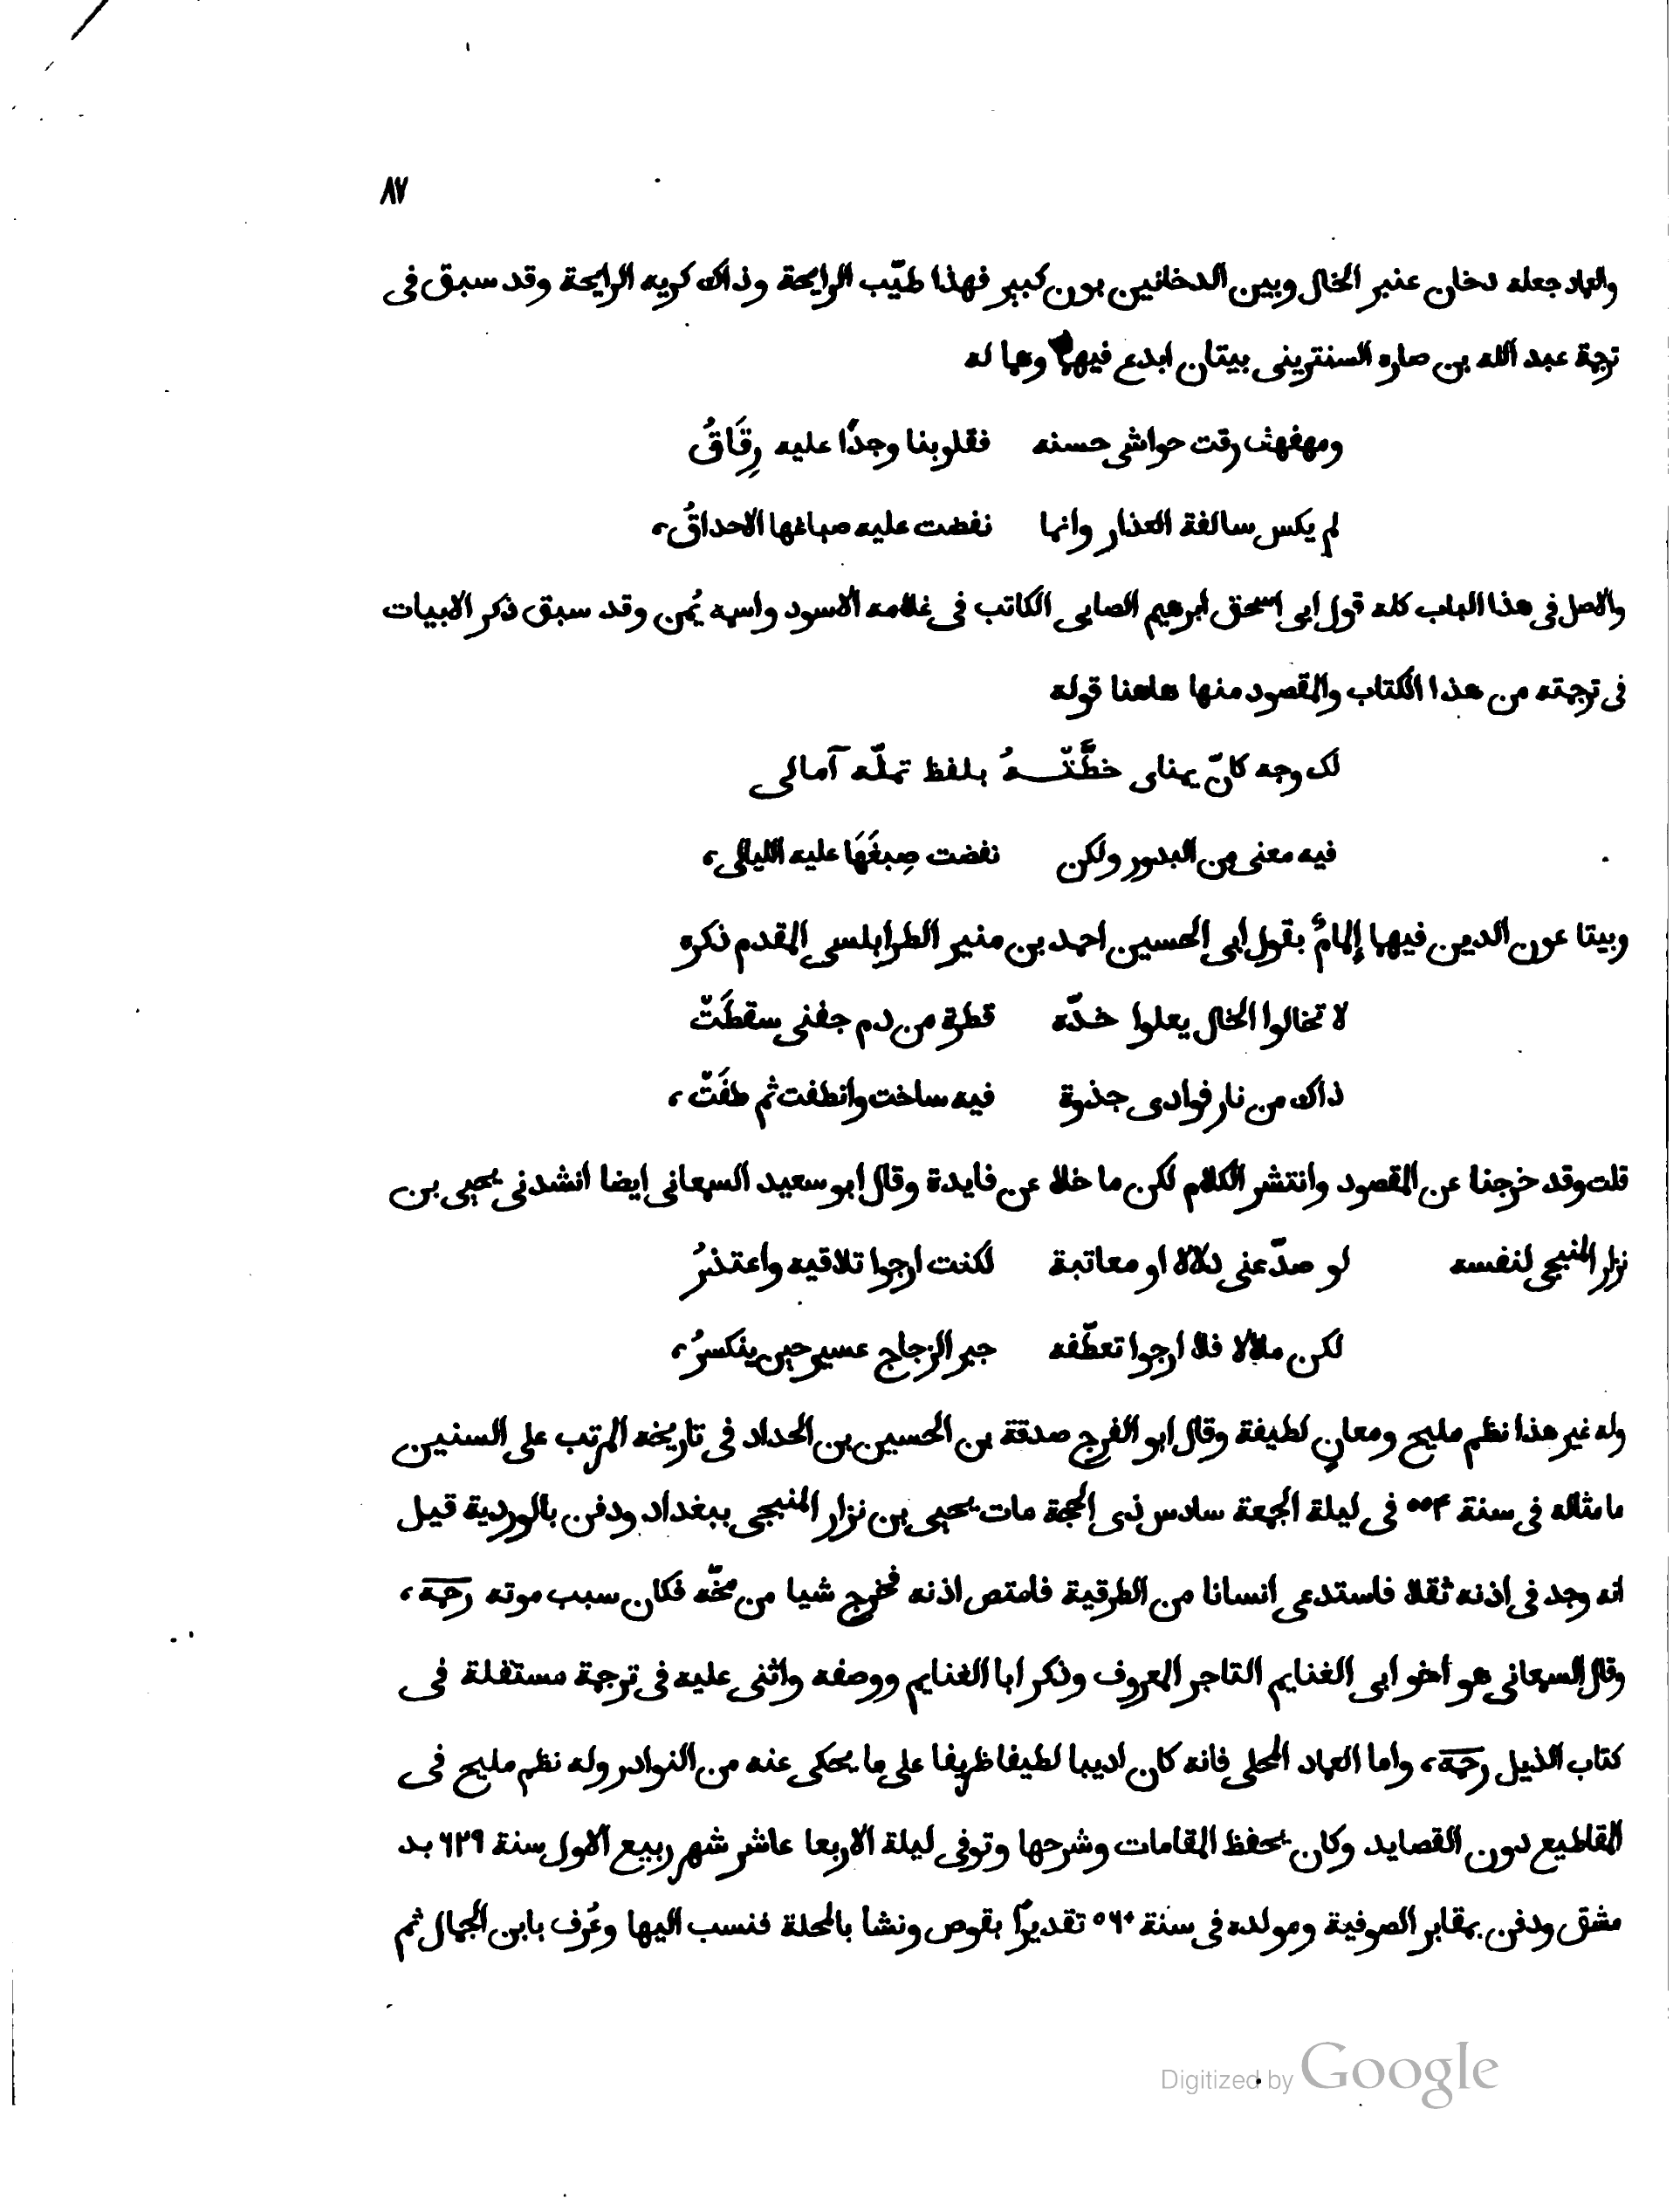 ٨٧
والعماد جعله دخان عنبر الخال وبين الدخانين بون كبير فهذا طيّب الرايحة وذاك كريه الرايحة وقد سبق فى
ترجمة عبد الله بن صاره السنترينى بيتان ابدع فيهما وهما له
ومهفهف رقت حواشى حسنه فقلوبنا وجدًا عليه رِقَاقُ
لم يكس سالفة العذار وانما نفضت عليه صباغها الاحداقُ،
والاصل فى هذا الباب كله قول ابى اسحق ابرهيم الصابى الكاتب فى غلامه الاسود واسمه يُمن وقد سبق ذكر الابيات
فى ترجمته من هذا الكتاب والمقصود منها هاهنا قوله
لك وجه كانّ يمناى خطَّتْـهُ بلفظ تملّه آمالى
فيه معنى من البدور ولكن نفضت صِبغَهَا عليه الليالى،
وبيتا عون الدين فيهما إلمامٌ بقول ابى الحسين احمد بن منير الطرابلسى المقدم ذكره
لا تخالوا الخال يعلوا خدّه قطرة من دم جفنى سقطَتْ
ذاك من نار فوادى جذوة فيه ساخت وانطفت ثم طفَتْ،
قلت وقد خرجنا عن المقصود وانتشر الكلام لكن ما خلا عن فايدة وقال ابو سعيد السمعانى ايضا انشدنى يحيى بن
نزار المنبجى لنفسه لو صدّ عنى دلالا او معاتبة لكنت ارجوا تلاقيه واعتذرُ
لكن ملالا فلا ارجوا تعطّفه جبر الزجاج عسير حين ينكسرُ،
وله غير هذا نظم مليح ومعانٍ لطيفة وقال ابو الفرج صدقة بن الحسين بن الحداد فى تاريخه المرتب على السنين
ما مثاله فى سنة ٥٥٤ فى ليلة الجمعة سادس ذى الحجة مات يحيى بن نزار المنبجى ببغداد ودفن بالوردية قيل
انه وجد فى اذنه ثقلا فاستدعى انسانا من الطرقية فامتص اذنه فخرج شيا من مخّه فكان سبب موته رحمه،
وقال السمعانى هو اخو ابى الغنايم التاجر المعروف وذكر ابا الغنايم ووصفه واثنى عليه فى ترجمة مستقلة فى
كتاب الذيل رحمه، واما العماد المحلى فانه كان اديبا لطيفا ظريفا على ما يحكى عنه من النوادر وله نظم مليح فى
المقاطيع دون القصايد وكان يحفظ المقامات وشرحها وتوفى ليلة الاربعا عاشر شهر ربيع الاول سنة ٦٢٩ بد
مشق ودفن بمقابر الصوفية ومولده فى سنة ٥٦٠ تقديرًا بقوص ونشا بالمحلة فنسب اليها وعُرف بابن الجمال ثم
Digitized by Google